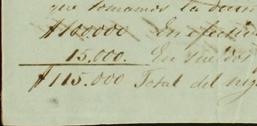 que tomamos la
$100000 En efectivo
15.000. En
$115.000 Total del